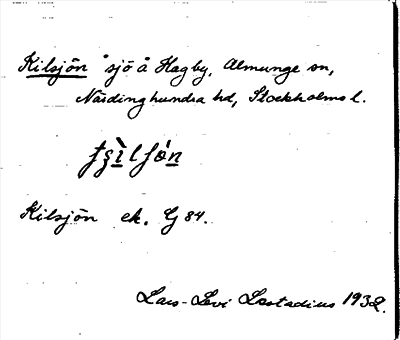 Kilsjön sjö å Hagby, Almunge sn,
Närdinghundra hd, Stockholms l.
Kilsjön ek. Gj 84.
Lars-Levi Læstadius 1932.